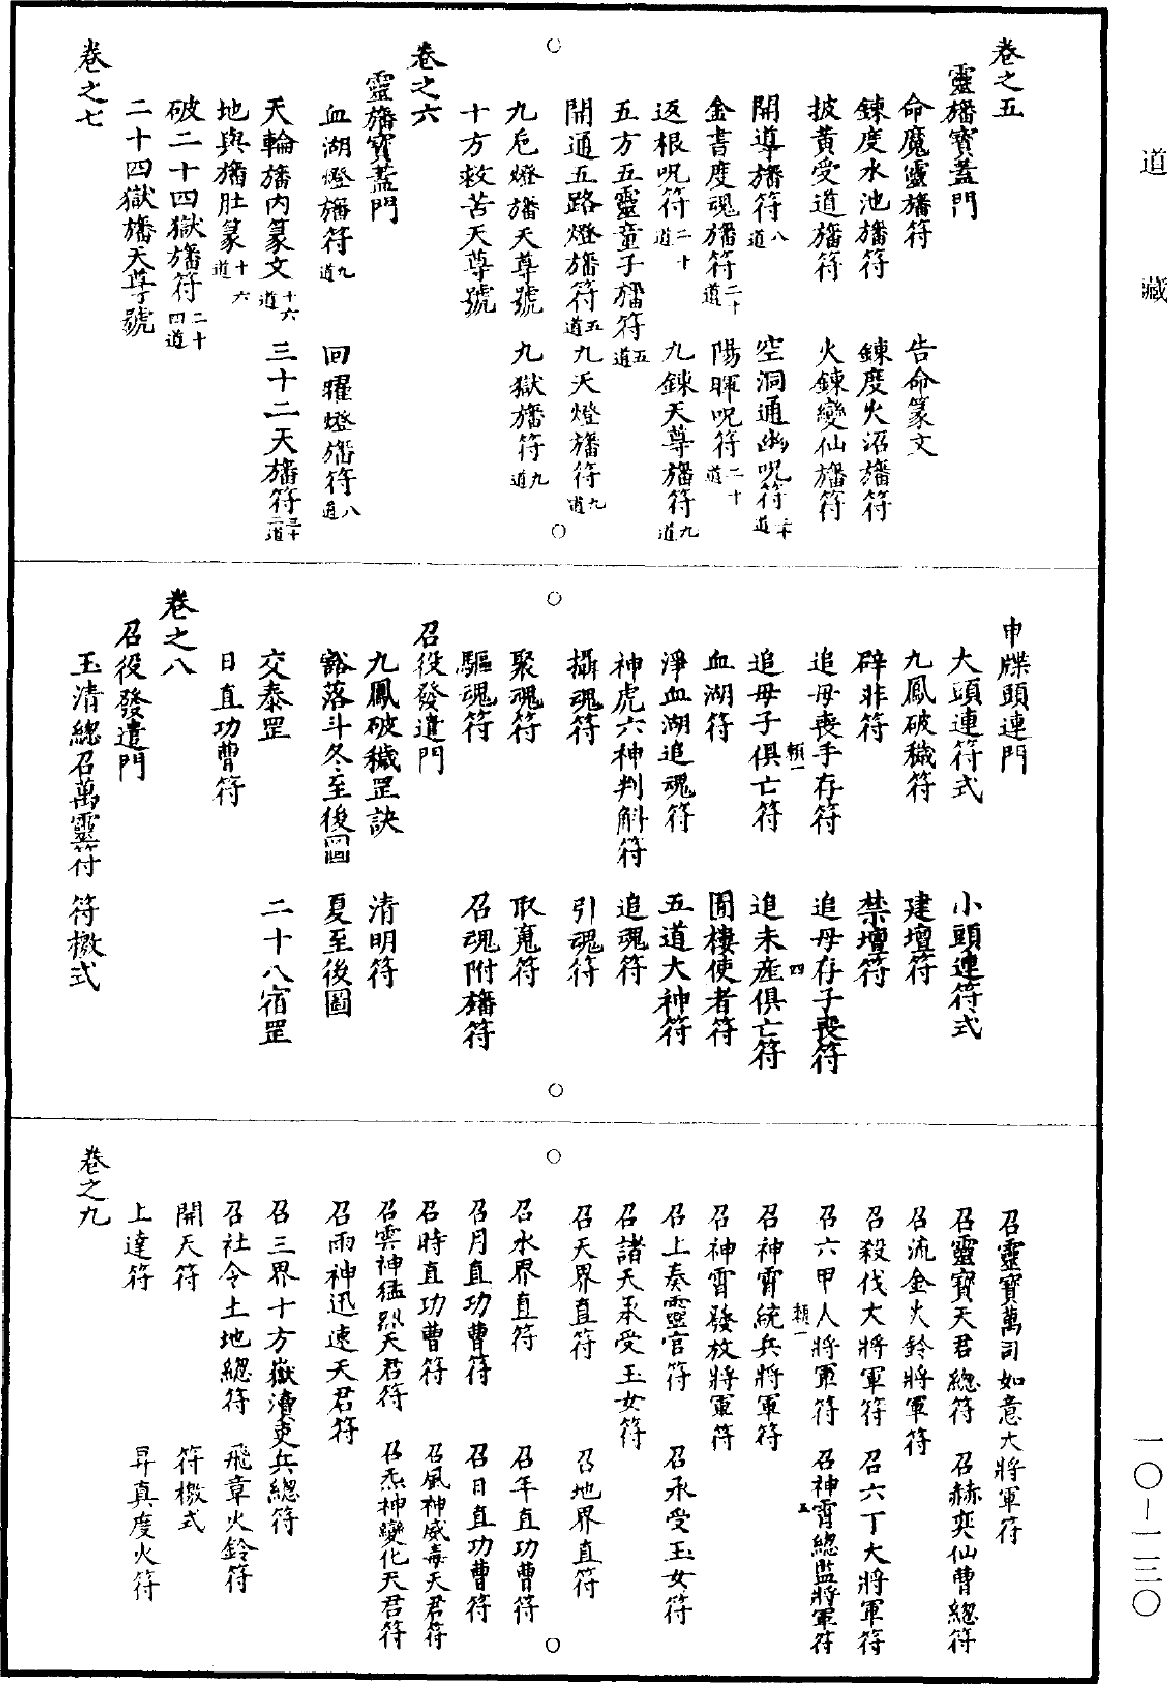 道藏
卷之五
靈旛寶蓋門
命魔靈旛符 告命篆文
鍊度水池旛符 鍊度火沼旛符
披黃受道旛符 火鍊變仙旛符
開導旛符八道 空洞通幽呪符二十道
金書度魂旛符二十道 陽暉呪符二十道
返根呪符二十道 九鍊天尊旛符九道
五方五靈童子旛符五道
開通五路燈旛符五道 九天燈旛符九道
九卮燈旛天尊號 九獄旛符九道
十方救苦天尊號
卷之六
靈旛寶蓋門
血湖燈旛符九道 回曜燈旛符八道
天輪旛內篆文十六道 三十二天旛符三十二道
地輿旛肚篆十六道
破二十四獄旛符二十四道
二十四獄旛天尊號
卷之七
申牒頭連門
大頭連符式 小頭連符式
九鳳破穢符 建壇符
辟非符 禁壇符
追母喪子存符 追母存子喪符
賴一 四
追母子俱亡符 追未產俱亡符
血湖符 圊棲使者符
淨血湖追魂符 五道大神符
神虎六神判斛符 追魂符
攝魂符 引魂符
聚魂符 取嵬符
驅魂符 召魂附旛符
召役發遣門
九鳳破穢罡訣 清明符
豁落斗冬至後圖 夏至後圖
交泰罡 二十八宿罡
日直功曹符
卷之八
召役發遣門
玉清總召萬靈符 符檄式
召靈寶萬司如意大將軍符
召靈寶天君總符 召赫奕仙曹總符
召流金火鈴將軍符
召殺伐大將軍符 召六丁大將軍符
召六甲大將軍符 召神霄總監將軍符
賴一 五
召神霄統兵將軍符
召神霄發放將軍符
召上奏靈官符 召承受玉女符
召諸天承受玉女符
召天界直符 召地界直符
召水界直符 召年直功曹符
召月直功曹符 召日直功曹符
召時直功曹符 召風神威毒天君符
召雲神猛烈天君符 召炁神變化天君符
召雨神迅速天君符
召三界十方嶽瀆吏兵總符
召社令土地總符 飛章火鈴符
開天符 符檄式
上達符 昇真度火符
卷之九
一〇—一三〇